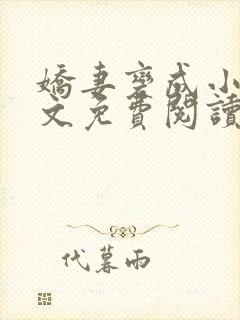 嬌妻變成小
文免費閱讀
代暮雨